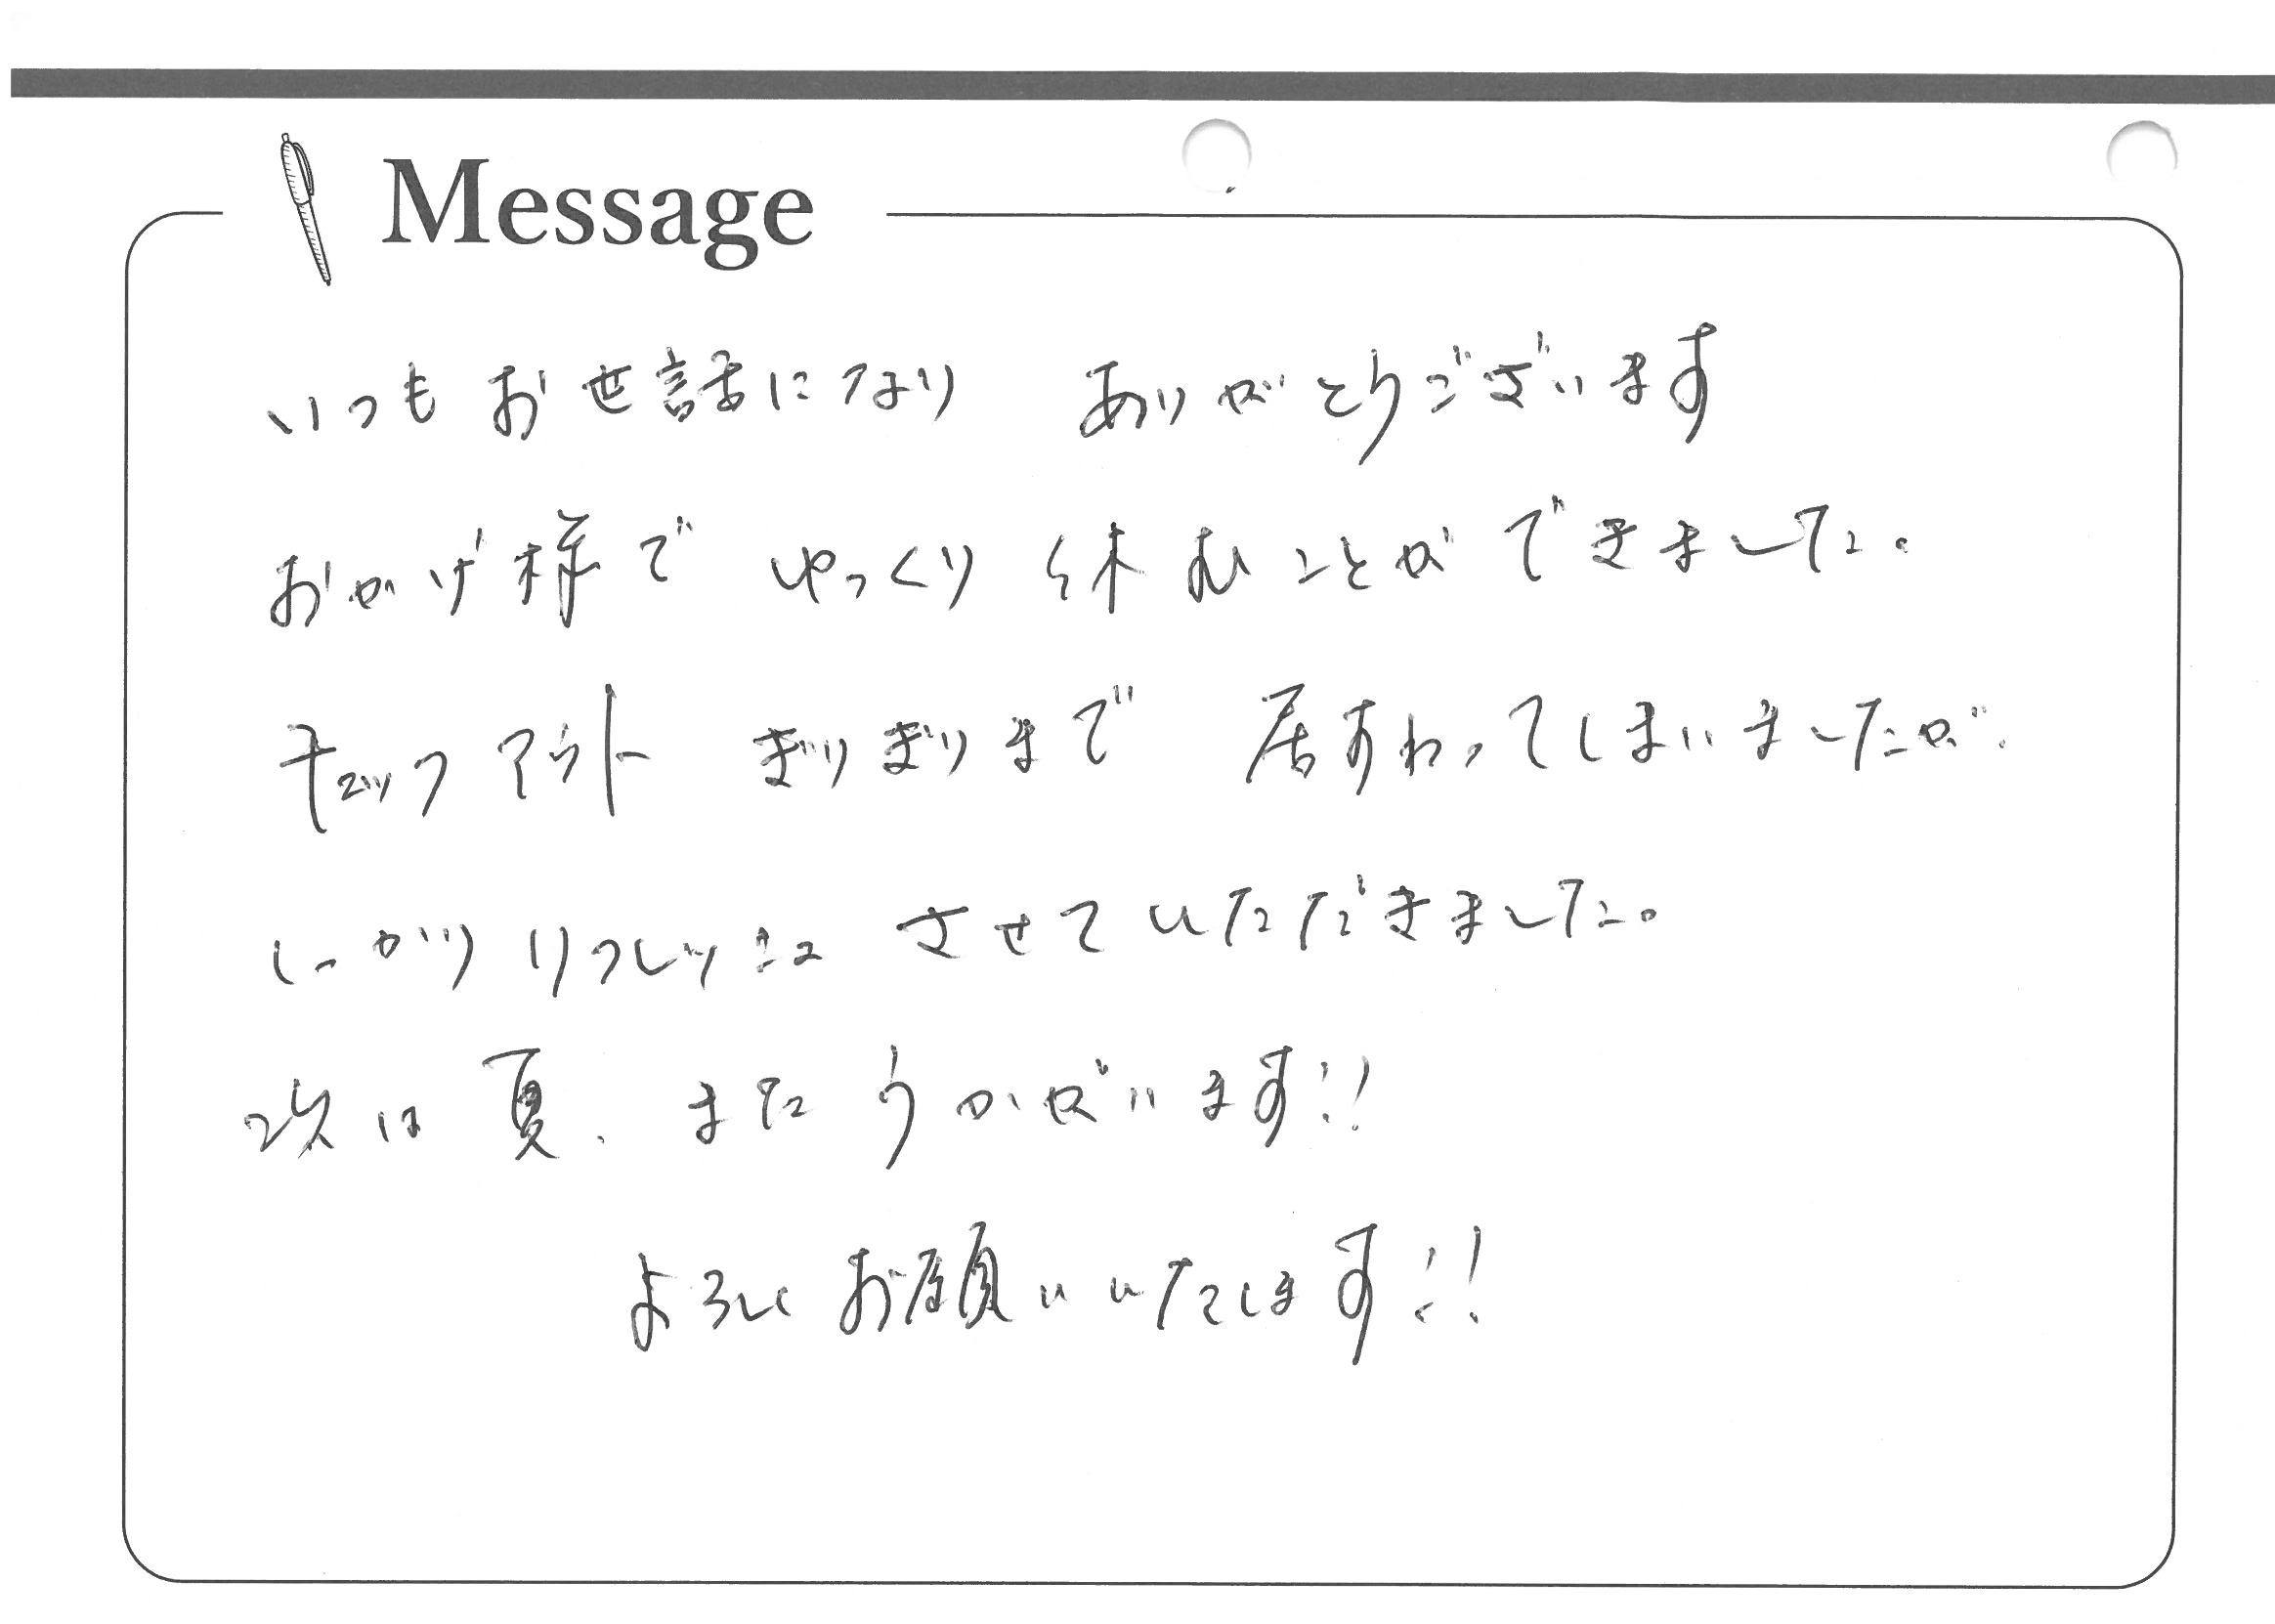 Message
いつもお世話になり ありがとうございます
おかげ様で ゆっくり 休むことができました。
チェックアウト ぎりぎりまで 居すわってしまいましたが、
しっかりリフレッシュ させていただきました。
次は夏、またうかがいます!!
よろしくお願いいたします!!